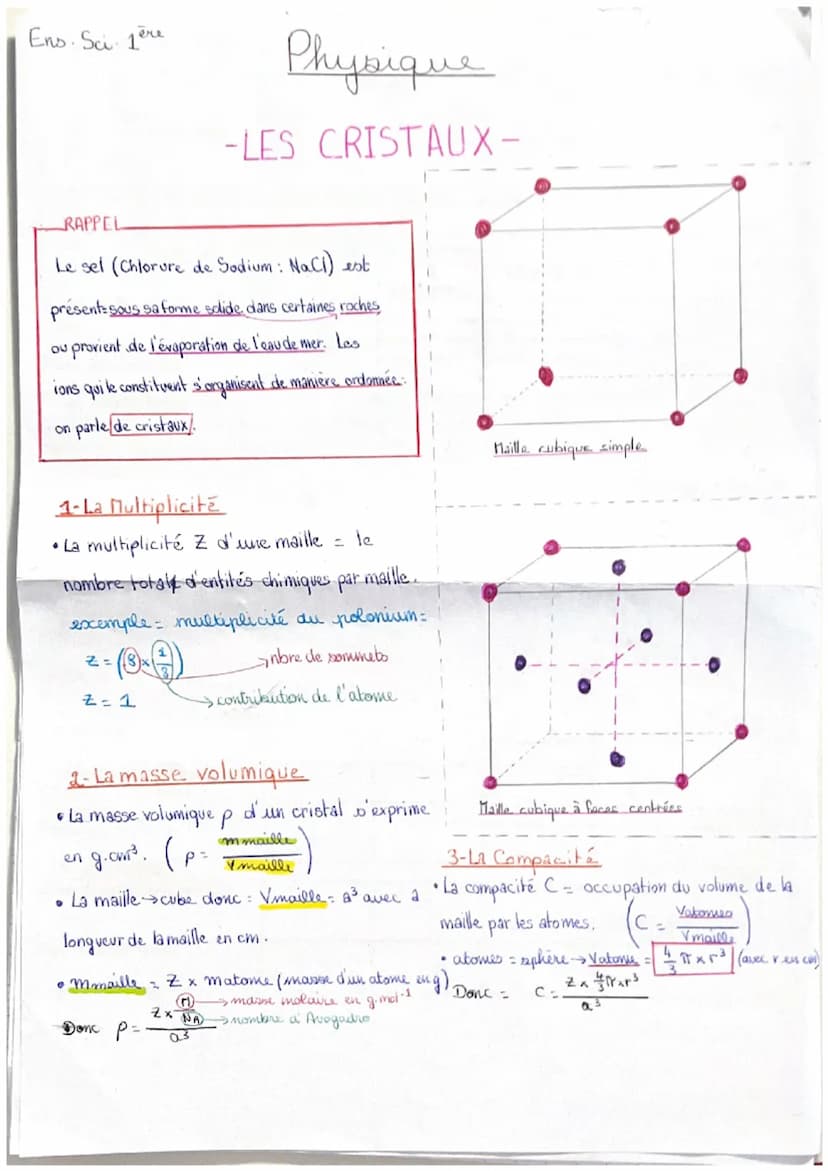 Ens. Sci. 1ère
Physique
-LES CRISTAUX-
RAPPEL
Le sel (Chlorure de Sodium : NaCl) est
présent sous sa forme solide dans certaines roches,
ou provient de l'évaporation de l'eau de mer. Les
ions qui le constituent s'organisent de manière ordonnée :
on parle de cristaux.
Maille cubique simple
1-La Multiplicité
• La multiplicité Z d'une maille = le
nombre total d'entités chimiques par maille.
exemple = multiplicité du polonium =
Z = (8 × 1/8) → nbre de sommets
Z = 1 → contribution de l'atome
Maille cubique à faces centrées
2- La masse volumique
• La masse volumique ρ d'un cristal s'exprime
en g.cm³. (ρ = mmaille / Vmaille)
• La maille → cube donc : Vmaille = a³ avec a
longueur de la maille en cm.
• Mmaille = Z × matome (masse d'un atome en g)
Donc ρ = Z × M/NA / a³
→ masse molaire en g.mol⁻¹
→ nombre d'Avogadro
3-La Compacité
• La compacité C = occupation du volume de la
maille par les atomes. (C = Vatomes / Vmaille)
• atomes = sphère → Vatome = 4/3 π × r³ (avec r en cm)
Donc = C = Z × 4/3 π × r³ / a³